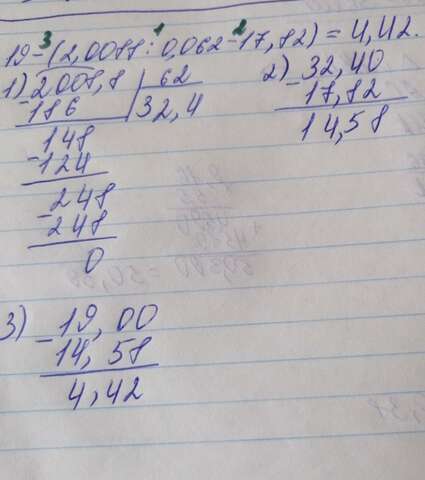 3 1 2
19-(2,0088:0,062-17,82)=4,42.
1) 2008,8 | 62
- 186 | 32,4
148
- 124
248
- 248
0
2) 32,40
- 17,82
14,58
3) 19,00
- 14,58
4,42